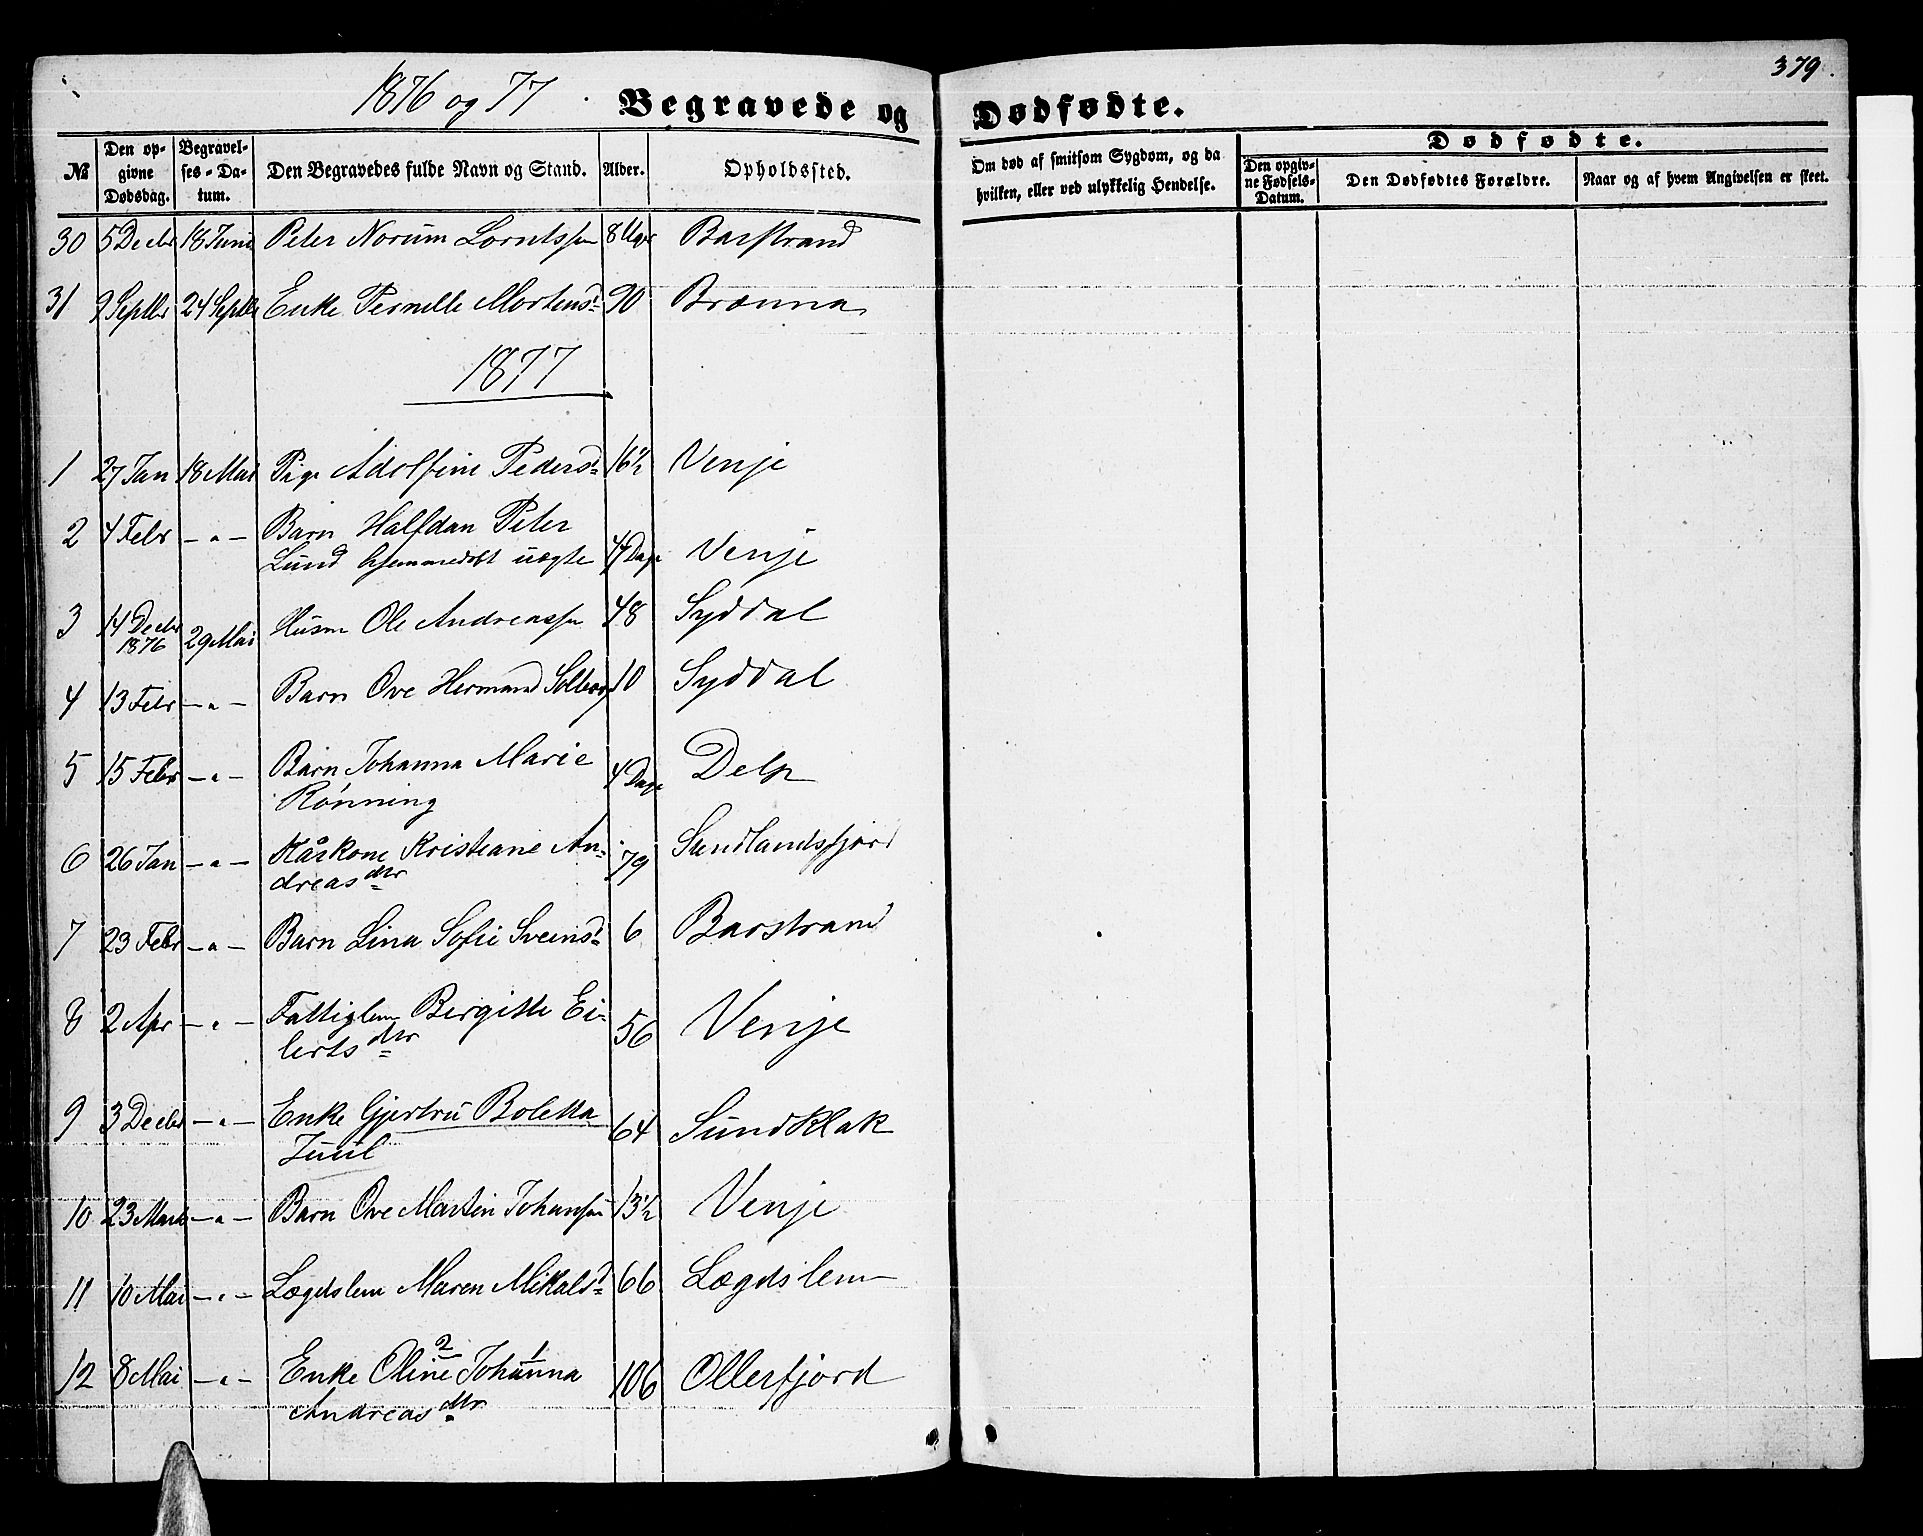 1876 og 77 Begravede og Dødfødte. 379.
№ Den opgivne Dødsdag. Begravelses-Datum. Den Begravedes fulde Navn og Stand. Alder. Opholdssted. Om død af smitsom Sygdom, og da hvilken, eller ved ulykkelig Hendelse. Dødfødte.
Den opgivne Fødsels-Datum. Den Dødfødtes Forældre. Naar og af hvem Angivelsen er skeet.
30 5 Decbr 18 Juni Peter Norum Lorntssen 8 Uger Barstrand
31 9 Septbr 24 Septbr Enke Pernille Mortensd 90 Brænna
1877
1 27 Jan 18 Mai Pige Adolfine Pedersd 16½ Venje
2 4 Febr - " - Barn Halfdan Peter
Lund hjemmedøbt uægte 4 Dage Venje
3 14 Decbr 1876 29 Mai Husm Ole Andreassen 48 Syddal
4 13 Febr - " - Barn Ove Hermand Solberg 10 Syddal
5 15 Febr - " - Barn Johanna Marie
Rönning 4 Dage Delp
6 26 Jan - " - Kårkone Kristiane An-
dreasdtr 79 Sundlandsfjord
7 23 Febr - " - Barn Lina Sofie Sveinsd 6 Barstrand
8 2 Apr - " - Fattiglem Bergitte Ei-
lertsdtr 56 Venje
9 3 Decbr - " - Enke Gjertru Boletta
Juul 64 Sundklak
10 23 Marts - " - Barn Ove Martin Johansen 13½ Venje
11 10 Mai - " - Lægdslem Maren Mikalsd 66 Lægdslem
12 8 Mai - " - Enke Oline 2 Johanna 1
Andreasdtr 106 Ollerfjord